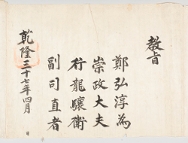 教旨
鄭弘淳為
崇政大夫
行龍驤衛
副司直者
乾隆三十七年四月